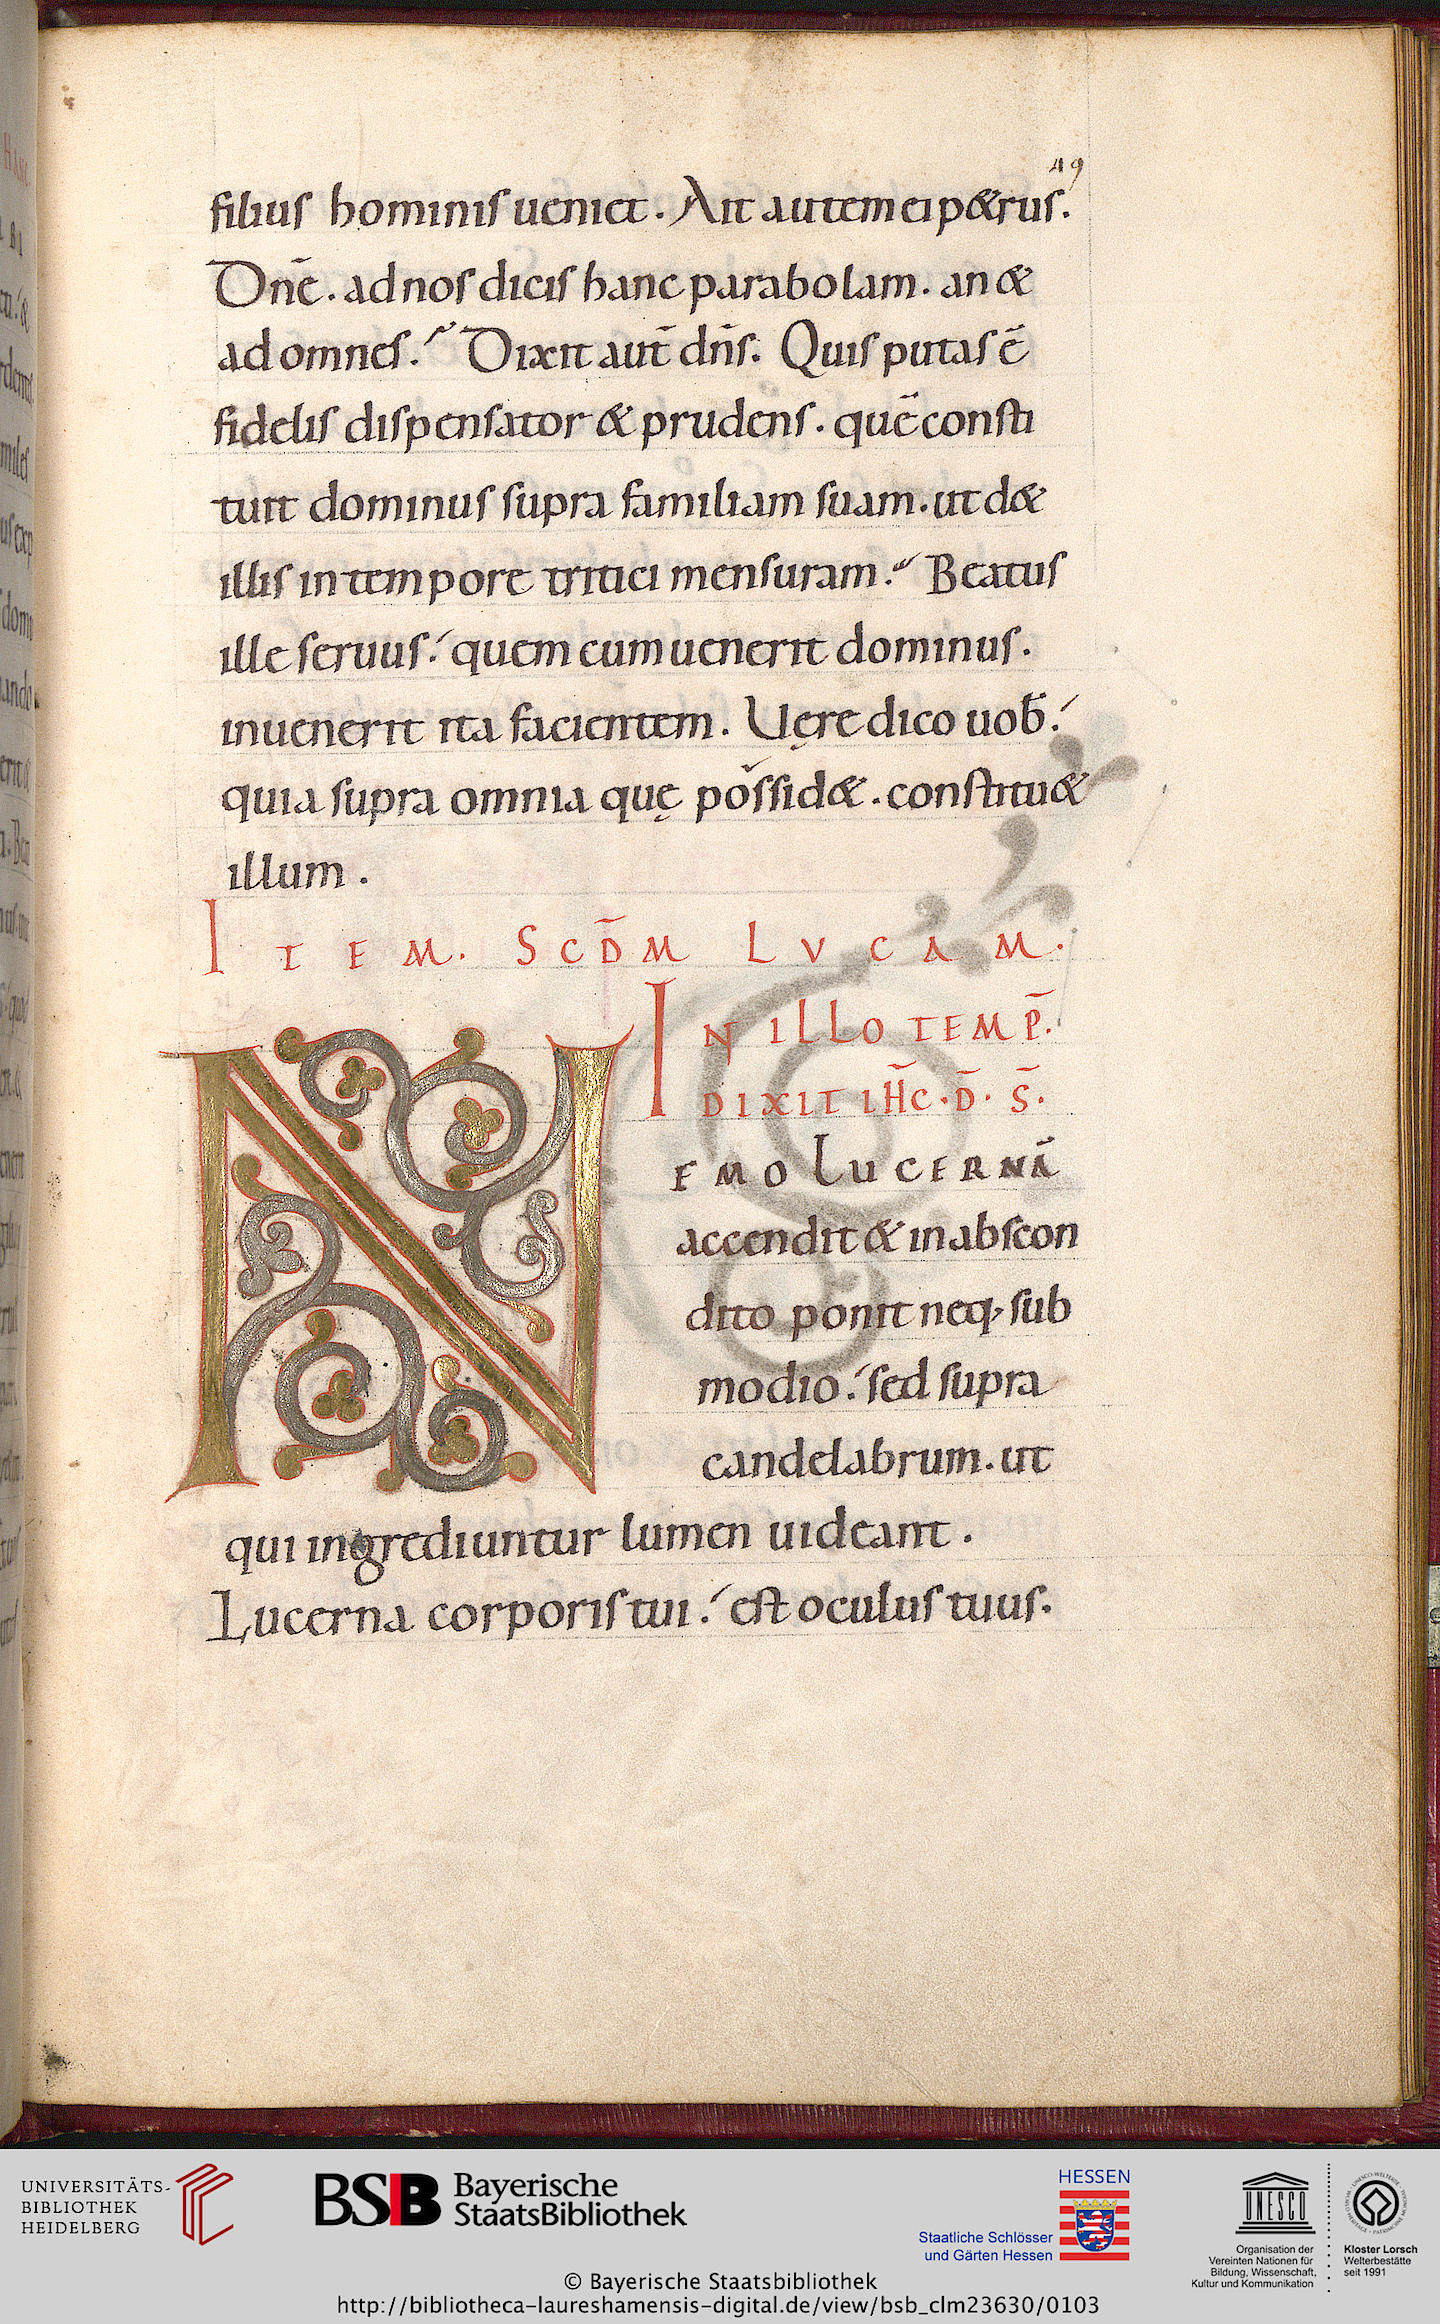 49
filius hominis ueniet. Ait autem ei p&rus.
Dnē. ad nos dicis hanc parabolam. an &
ad omnes. Dixit aut̄ dn̄s. Quis putas ē
fidelis dispensator & prudens. quē consti
tuit dominus supra familiam suam. ut d&
illis in tempore tritici mensuram. Beatus
ille seruus. quem cum uenerit dominus.
inuenerit ita facientem. Uęre dico uob̄.
quia supra omnia quę possid&. constitu&
illum.
ITEM. SCD̄M LVCAM.
IN ILLO TEMP̄.
DIXIT IH̄C. D̄. S̄.
NEMO LUCERNĀ
accendit & in abscon
dito ponit neq; sub
modio. sed supra
candelabrum. ut
qui ingrediuntur lumen uideant.
Lucerna corporis tui. est oculus tuus.
UNIVERSITÄTS-
BIBLIOTHEK
HEIDELBERG
BSB Bayerische
StaatsBibliothek
HESSEN
Staatliche Schlösser
und Gärten Hessen
UNESCO
Organisation der
Vereinten Nationen für
Bildung, Wissenschaft,
Kultur und Kommunikation
Kloster Lorsch
Welterbestätte
seit 1991
© Bayerische Staatsbibliothek
http://bibliotheca-laureshamensis-digital.de/view/bsb_clm23630/0103